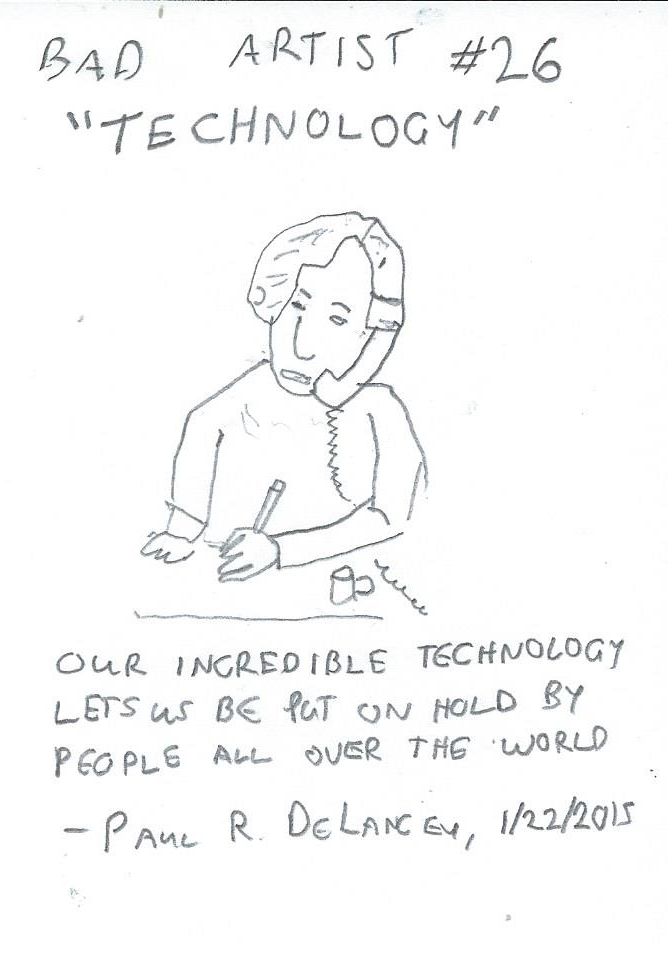 BAD ARTIST #26
"TECHNOLOGY"
OUR INCREDIBLE TECHNOLOGY
LETS US BE PUT ON HOLD BY
PEOPLE ALL OVER THE WORLD
- PAUL R. DELANCEY, 1/22/2015